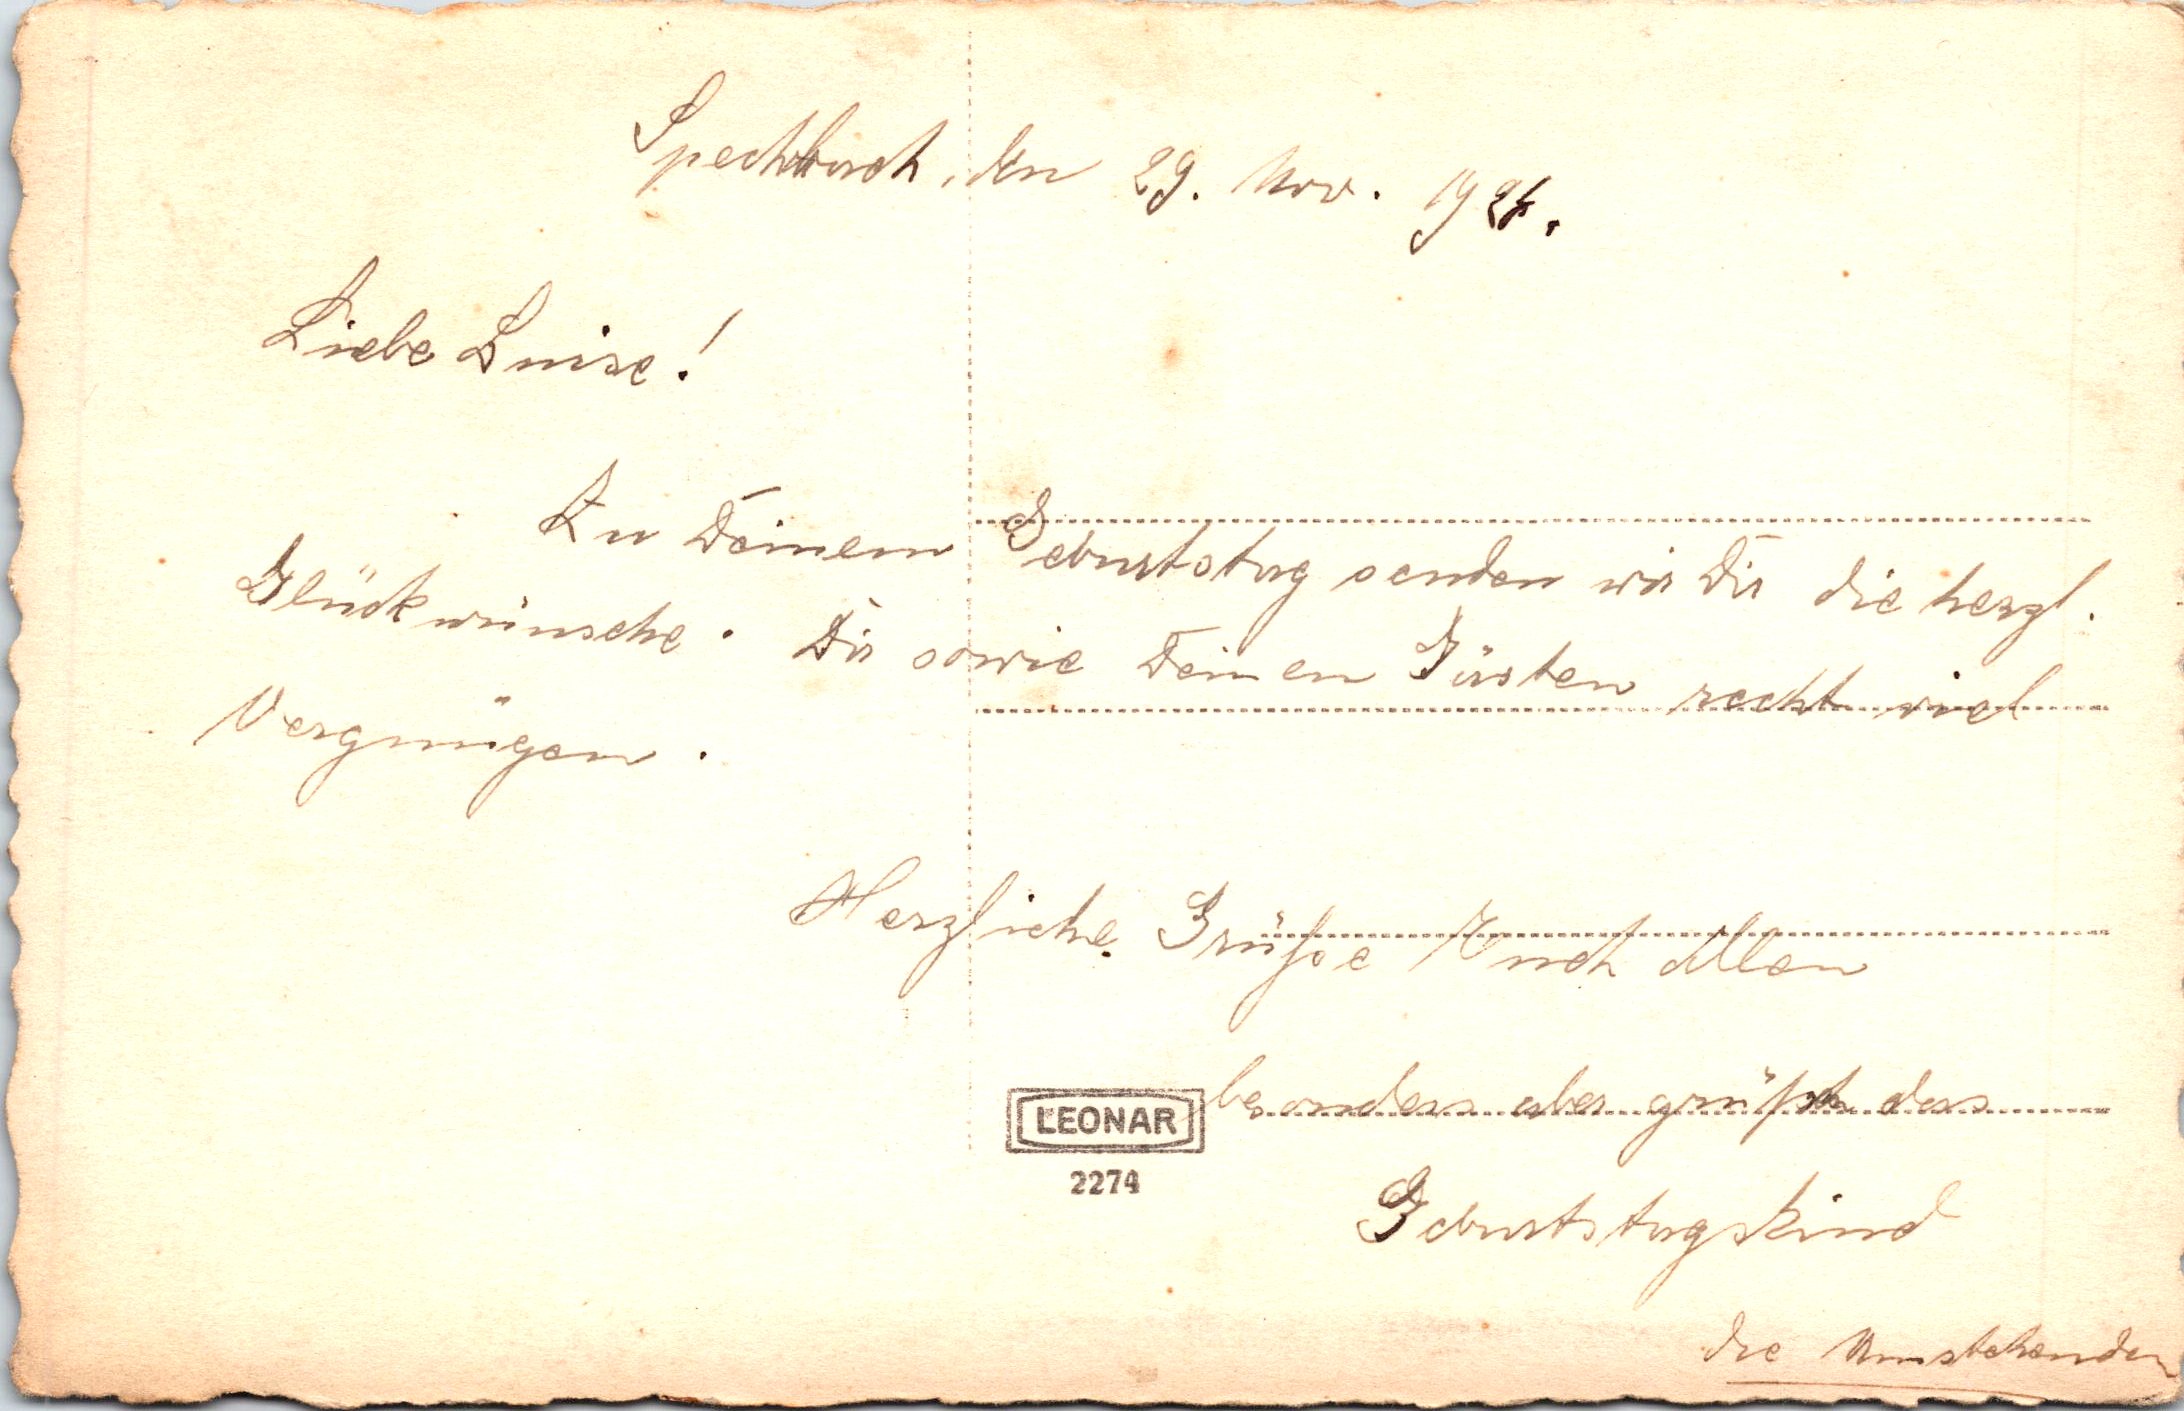 Spechbach, den 29. Nov. 1921.
Liebe Luise!
Zu Deinem Geburtstag senden wir Dir die herzl.
Glückwünsche. Dir sowie Deinen Gästen recht viel
Vergnügen.
Herzliche Grüße Euch Allen
besonders aber grüßt das
Geburtstagskind
die Umstehenden
LEONAR
2274